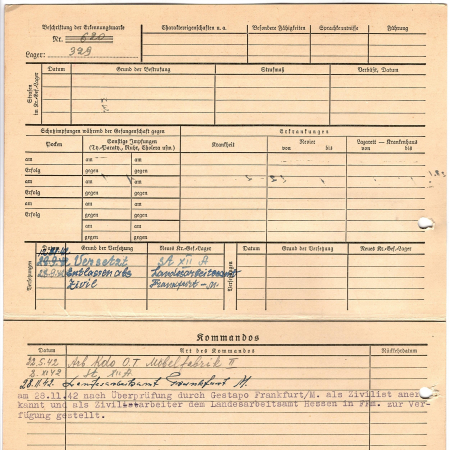 Beschriftung der Erkennungsmarke
Nr. 620
Lager: 329
Charaktereigenschaften u. a.
Besondere Fähigkeiten
Sprachkenntnisse
Führung
Strafen im Kr.-Gef.-Lager
Datum
Grund der Bestrafung
Strafmaß
Verbüßt, Datum
Schutzimpfungen während der Gefangenschaft gegen
Erkrankungen
Pocken
Sonstige Impfungen
(Ty.-Paraty., Ruhr, Cholera usw.)
Krankheit
Revier
von bis
Lazarett – Krankenhaus
von bis
am
am
Erfolg
gegen
am
am
Erfolg
gegen
am
am
Erfolg
gegen
am
am
Erfolg
gegen
am
gegen
Versetzungen
Grund der Versetzung
Neues Kr.-Gef.-Lager
Versetzungen
Datum
Grund der Versetzung
Neues Kr.-Gef.-Lager
Versetzt
XII A
Entlassen als
Landesarbeitsamt
Zivil
Frankfurt-M.
Kommandos
Datum
Art des Kommandos
Rückkehrdatum
22.5.42 Arb Kdo O.T Möbelfabrik II
2. XI 42 St. XII A
28.11.42. Landesarbeitsamt Frankfurt M.
am 28.11.42 nach Überprüfung durch Gestapo Frankfurt/M. als Zivilist aner
kannt und als Zivilistarbeiter dem Landesarbeitsamt Hessen in Ffm. zur ver-
fügung gestellt.